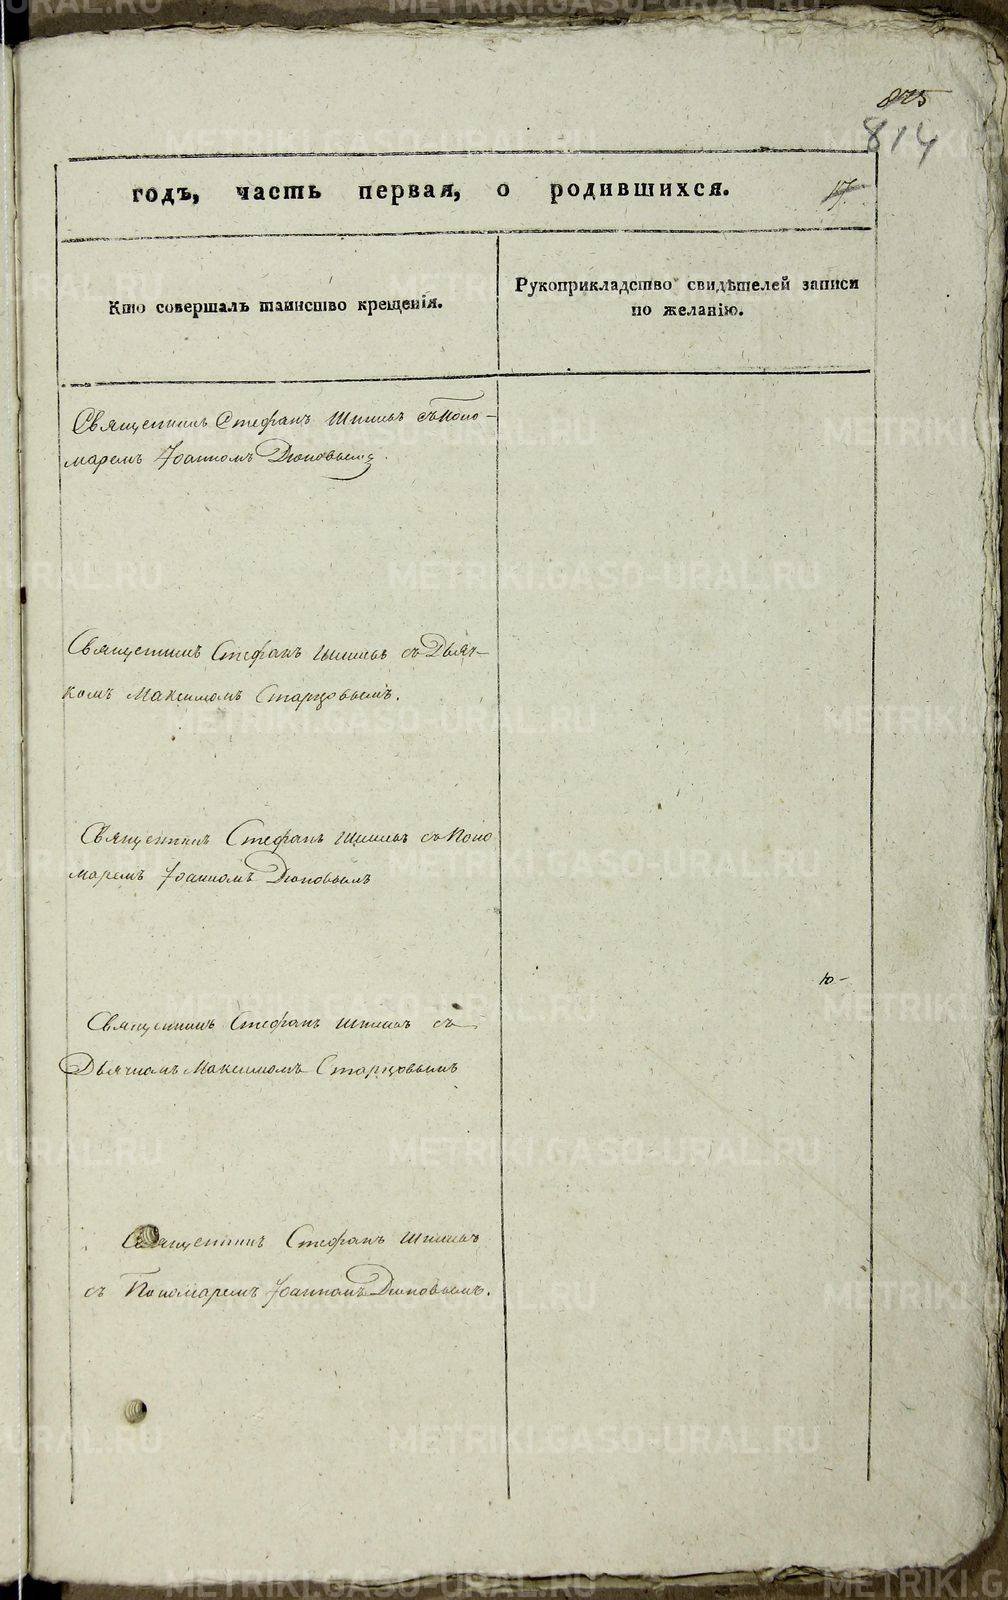 825
814
годъ, часть первая, о родившихся.
17
Кто совершалъ таинство крещенія.
Рукоприкладство свидѣтелей записи
по желанію.
Священникъ Стефанъ съ Поно-
маремъ Іоанномъ Дюповымъ.
Священникъ Стефанъ съ Дьяч-
комъ Максимомъ Старцовымъ.
Священникъ Стефанъ съ Поно
маремъ Іоанномъ Дюповымъ
ю-
Священникъ Стефанъ съ
Дьячкомъ Максимомъ Старцовымъ
Священникъ Стефанъ
съ Пономаремъ Іоанномъ Дюповымъ.
METRIKI.GASO-URAL.RU